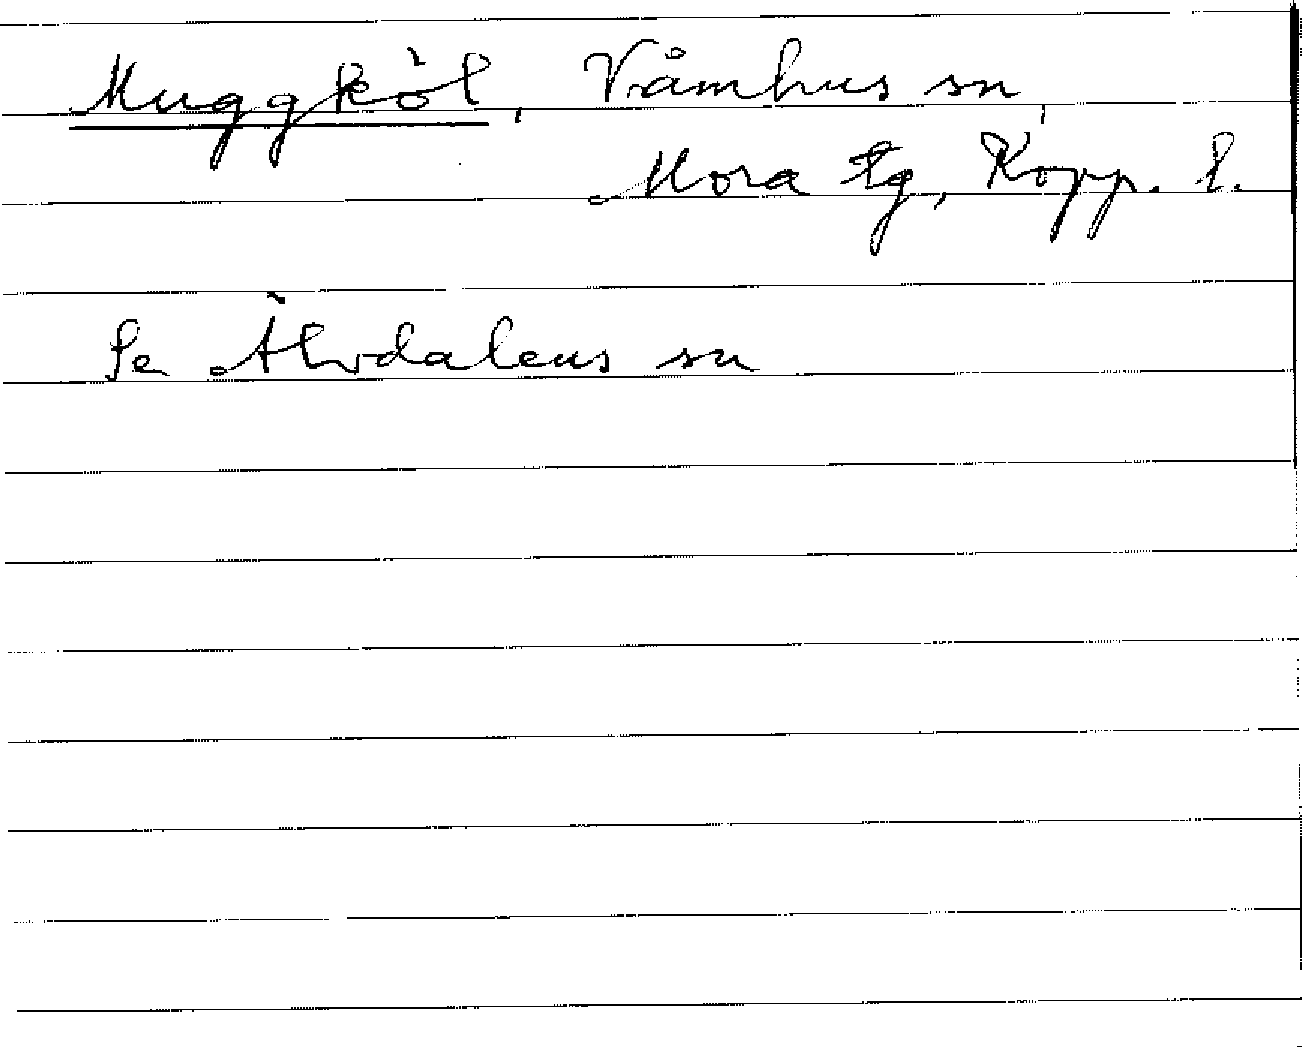 Muggköl, Våmhus sn,
Mora tg, Kopp. l.
Se Älvdalens sn